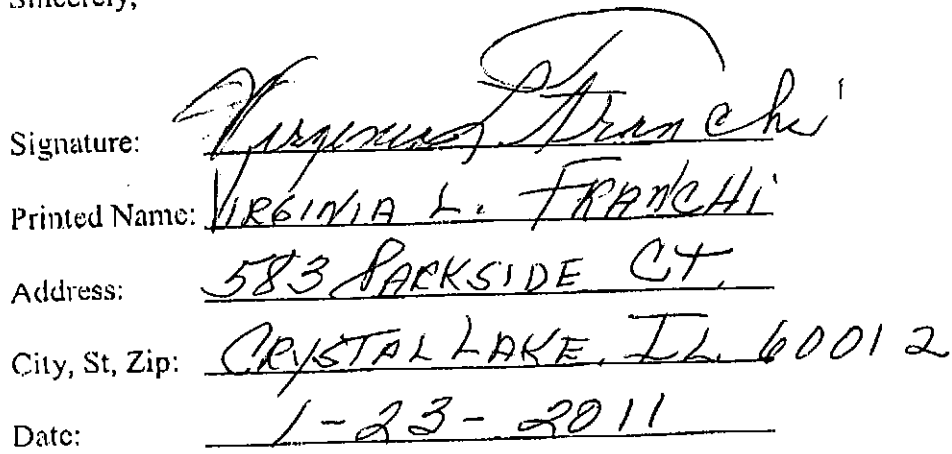 Sincerely,
Signature: Virginia L Franchi
Printed Name: VIRGINIA L. FRANCHI
Address: 583 PARKSIDE CT.
City, St, Zip: CRYSTAL LAKE, IL 60012
Date: 1-23-2011